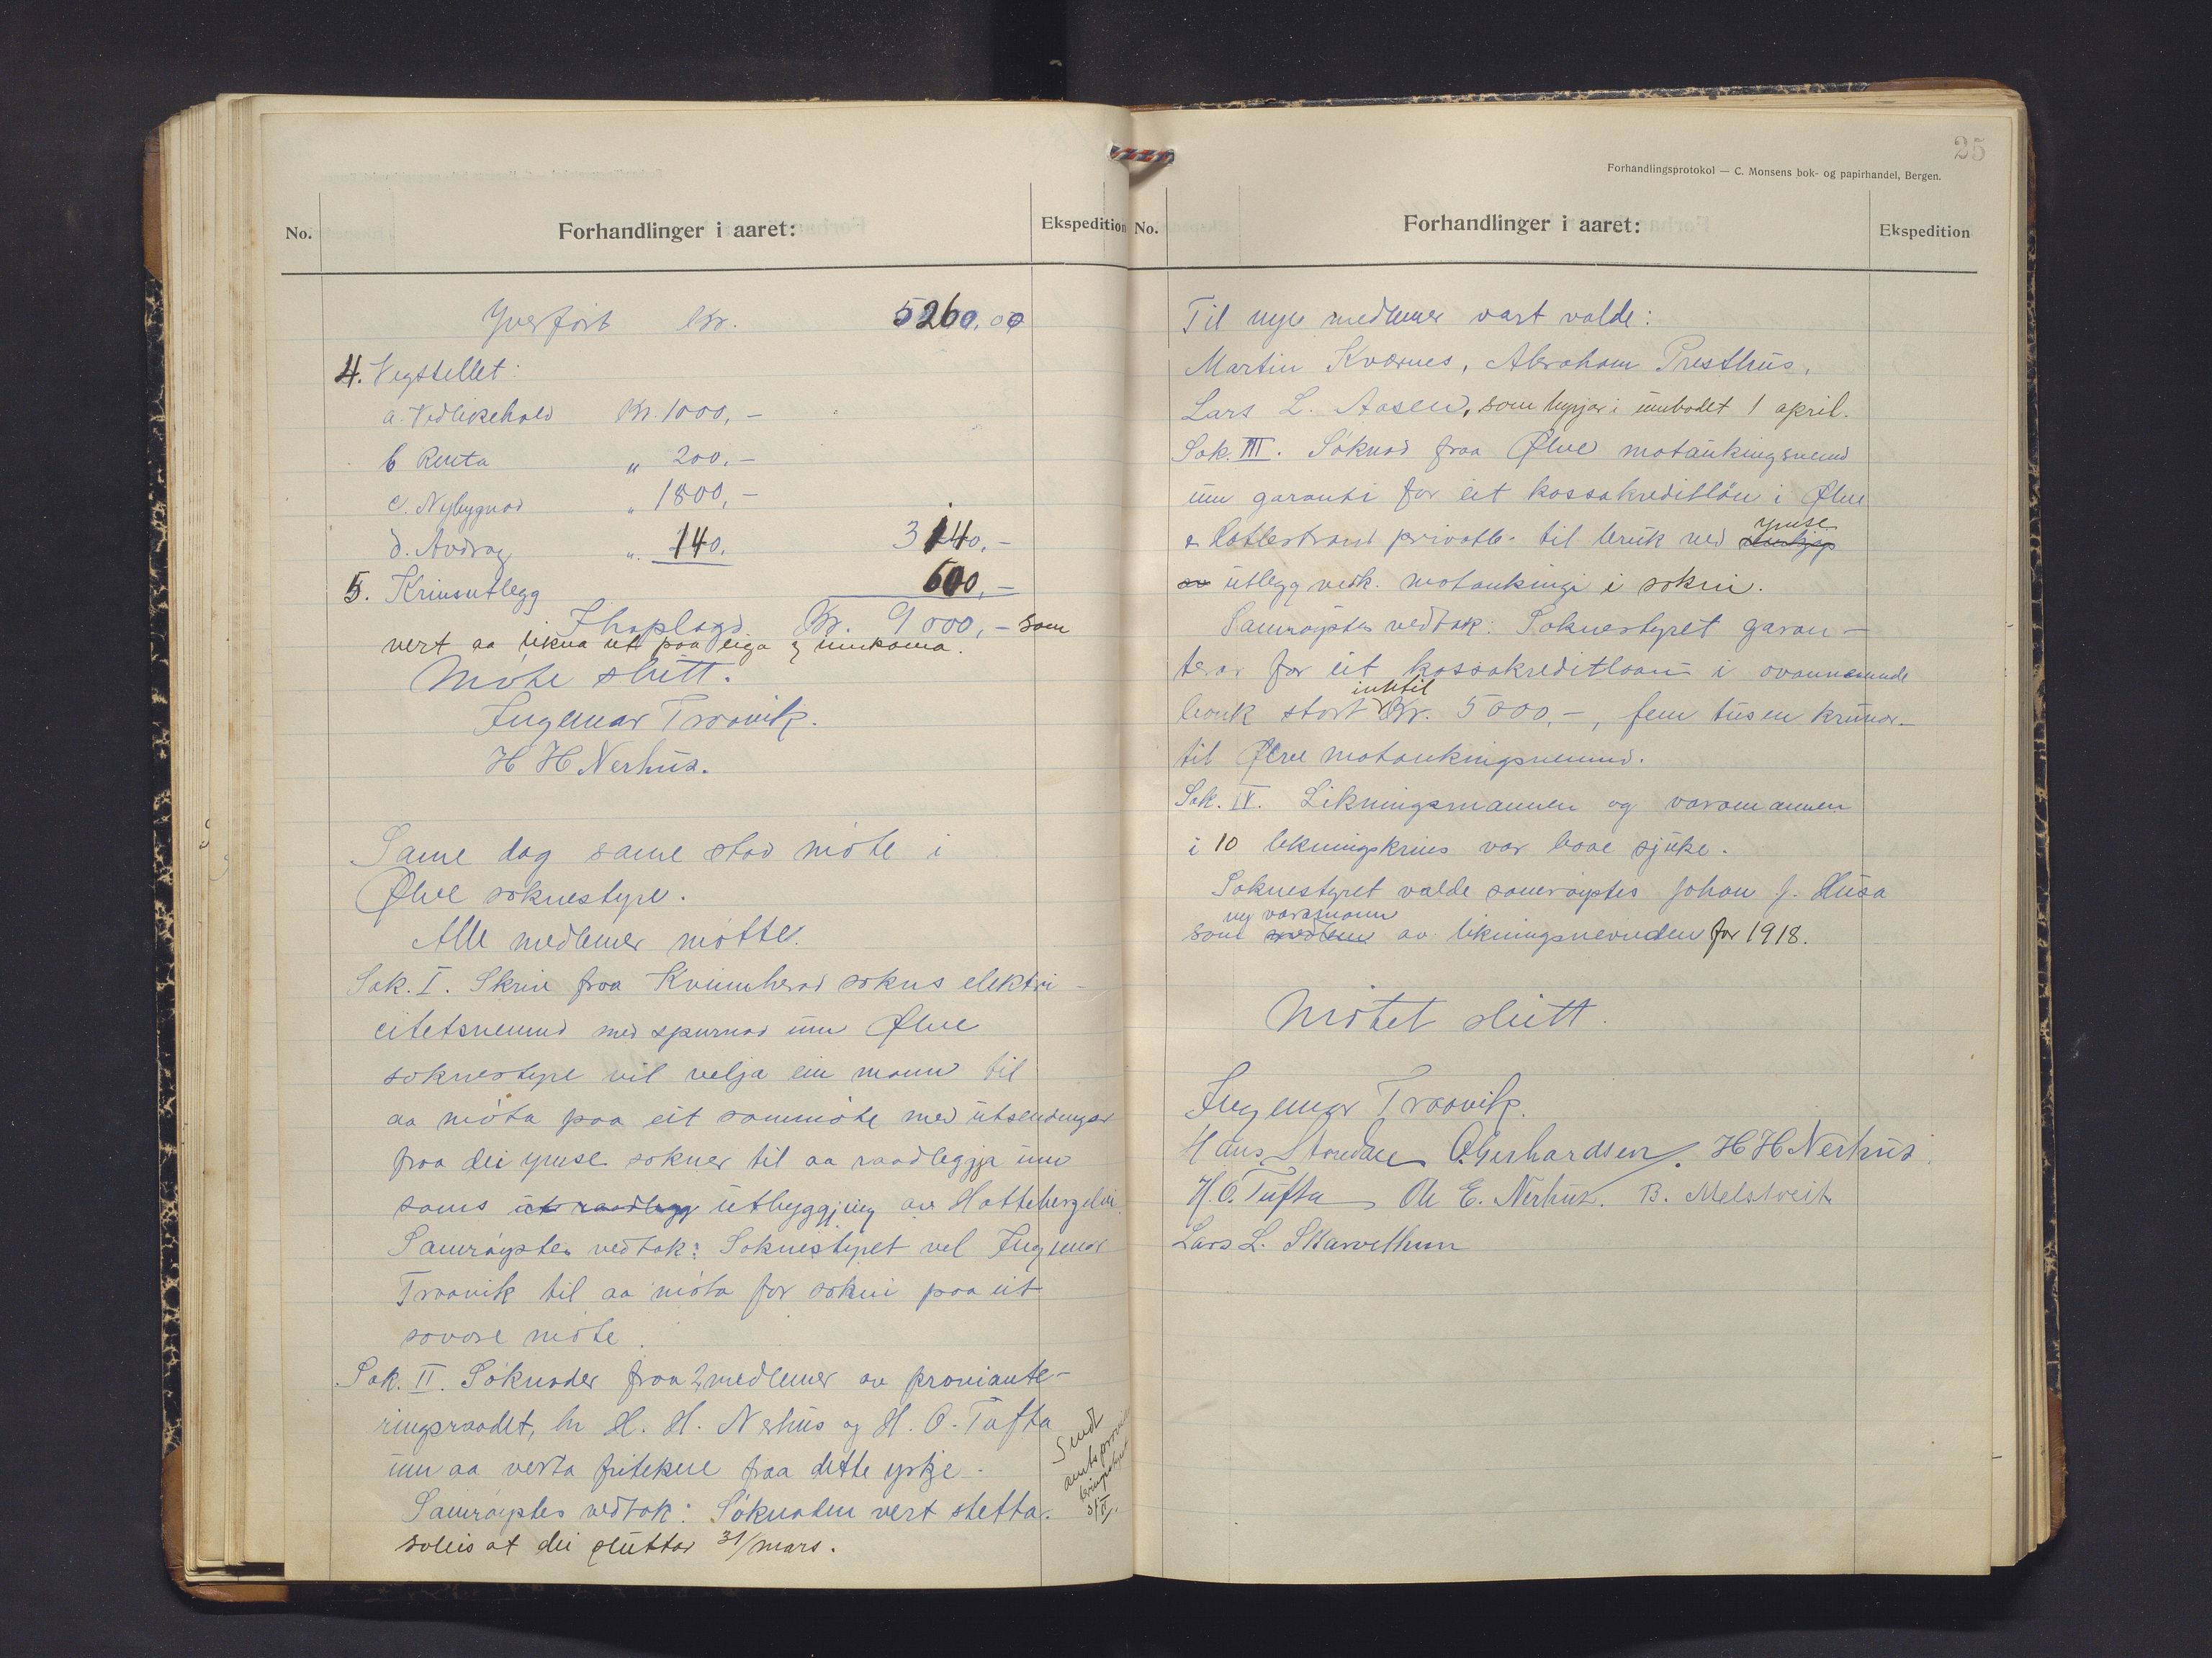 No.
Forhandlinger i aaret:
Ekspedition
Yverført Kr. 5260,00
4. Vegstellet:
a. Vedlikehald Kr. 1000,-
b Renta " 200,-
c. Nybygnad " 1800,-
d. Avdrag " 140. 3140,-
5. Krinsutlegg 600,-
Ihoplagd Kr. 9000,- som
vert aa likna ut paa eiga og innkoma.
Møte slutt.
Ingemar Traavik.
H H Nerhus.
Same dag same stad møte i
Ølve soknestyre.
Alle medlemer møtte.
Sak. I. Skriv fraa Kvinnherad sokns elektri-
citetsnemnd med spurnad um Ølve
soknestyre vil velja ein mann til
aa møta paa eit sammøte med utsendingar
fraa dei ymse sokner til aa raadleggja um
sams ut raadlegg utbyggjing av Hattebergelvi.
Samrøystes vedtak: Soknestyret vel Ingemar
Traavik til aa møta for sokni paa eit
sovore møte.
Sak. II. Søknader fraa 2 medlemer av proviante-
ringsraadet, hr H. H. Nerhus og H. O. Tufta
um aa verta fritekne fraa dette yrkje.
Samrøystes vedtak: Søknaden vert stetta.
soleis at dei sluttar 31/mars.
Sendt
amtsprovian
teringsstyret
3/II.
25
Forhandlingsprotokol — C. Monsens bok- og papirhandel, Bergen.
No.
Forhandlinger i aaret:
Ekspedition
Til nye medlemer vart valde:
Martin Kvarnes, Abraham Presthus,
Lars L. Aasen, som byrjar i umbodet 1 april.
Sak. III. Søknad fraa Ølve mataukingsnemnd
um garanti for eit kassakreditlån i Ølve
& Hatlestrand privatb. til bruk ved ymse
av utlegg vedk. mataukingi i sokni.
Samrøystes vedtak: Soknestyret garan-
terar for eit kassakreditlaan i ovannemnde
bank stort inntil Kr. 5000,-, fem tusen krunor-
til Ølve mataukingsnemnd.
Sak. IV. Likningsmannen og varamannen
i 10 likningskrins var baae sjuke.
Soknestyret valde samrøystes Johan J. Husa
som ny varamann medlem av likningsnevnden for 1918.
Møtet slutt.
Ingemar Traavik.
Hans Standal O. Gerhardsen. H H Nerhus.
H. O. Tufta Ole E. Nerhus. B. Melstveit
Lars L. Skarvethun